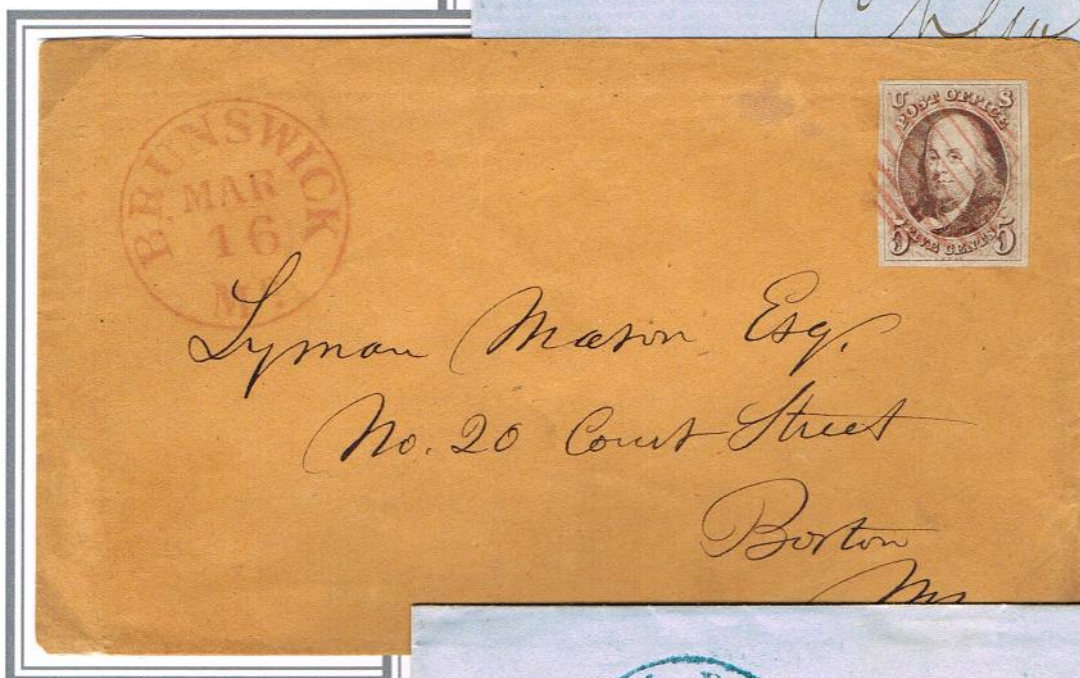 BRUNSWICK
MAR
16
U S
POST OFFICE
5 FIVE CENTS 5
Lyman Mason Esq.
No. 20 Court Street
Boston